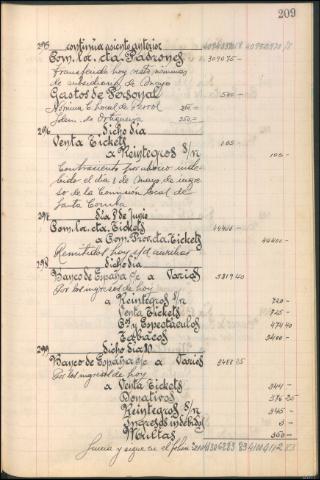 209
295 continúa asiento anterior
Com. loc. cta. Padrones 309075 -
Transferido hoy resto nóminas
de subsidiarios de Mayo
Gastos de Personal 500 -
Nómina C. Local de Ferrol 250 -
Idem. de Ortigueira 250 -
296 Dicho día
Venta Tickets 105
a Reintegros S/n 105 -
bido el día 1 de Mayo de ingre
so de la Comisión local de
Santa Comba
297 Día 9 de Junio
Com. loc. cta. Tickets
a Com. Prov. cta. Tickets
Remitidos hoy s/d auxiliar
298 Dicho día
Banco de España c/c a Varios 5319 40
Por los ingresos de hoy
a Reintegros S/n 720 -
Venta Tickets 725 -
Cs. y Espectáculos 474 40
Tabacos 3400 -
299 Dicho día 10
Banco de España c/c a Varios
Por los ingresos de hoy
a Venta Tickets 344 -
Donativos
Reintegros S/n 345 -
Ingresos indebidos
Multas
Suma y sigue en el folio